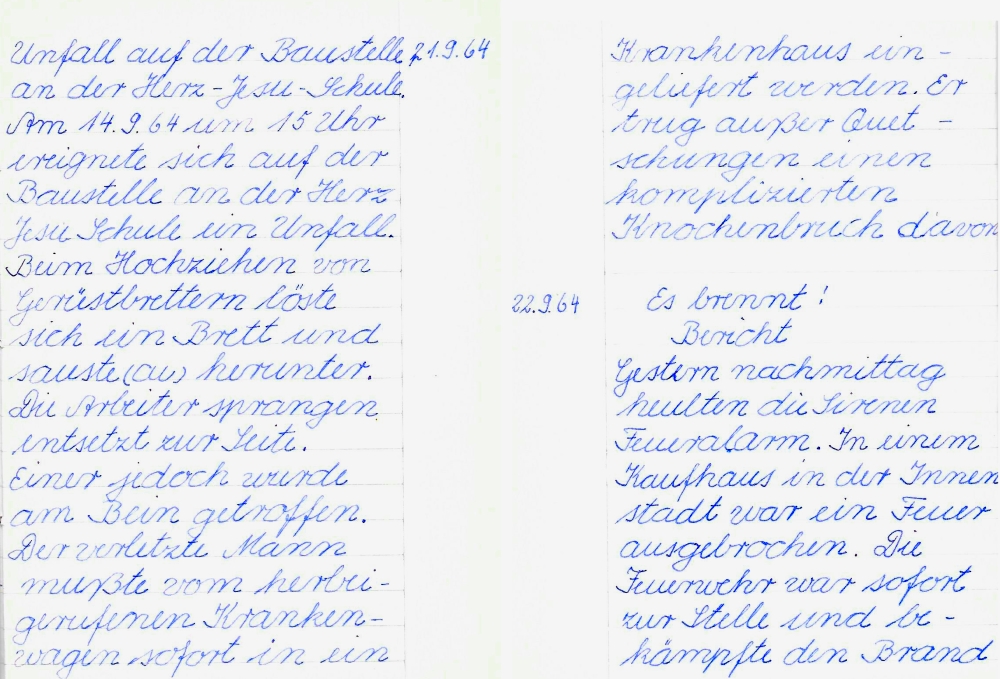 Unfall auf der Baustelle 21.9.64
an der Herz-Jesu-Schule.
Am 14.9.64 um 15 Uhr
ereignete sich auf der
Baustelle an der Herz
Jesu Schule ein Unfall.
Beim Hochziehen von
Gerüstbrettern löste
sich ein Brett und
sauste (au) herunter.
Die Arbeiter sprangen
entsetzt zur Seite.
Einer jedoch wurde
am Bein getroffen.
Der verletzte Mann
mußte vom herbei-
gerufenen Kranken-
wagen sofort in ein
Krankenhaus ein-
geliefert werden. Er
trug außer Quet-
schungen einen
komplizierten
Knochenbruch davon
22.9.64 Es brennt!
Bericht
Gestern nachmittag
heulten die Sirenen
Feueralarm. In einem
Kaufhaus in der Innen
stadt war ein Feuer
ausgebrochen. Die
Feuerwehr war sofort
zur Stelle und be-
kämpfte den Brand